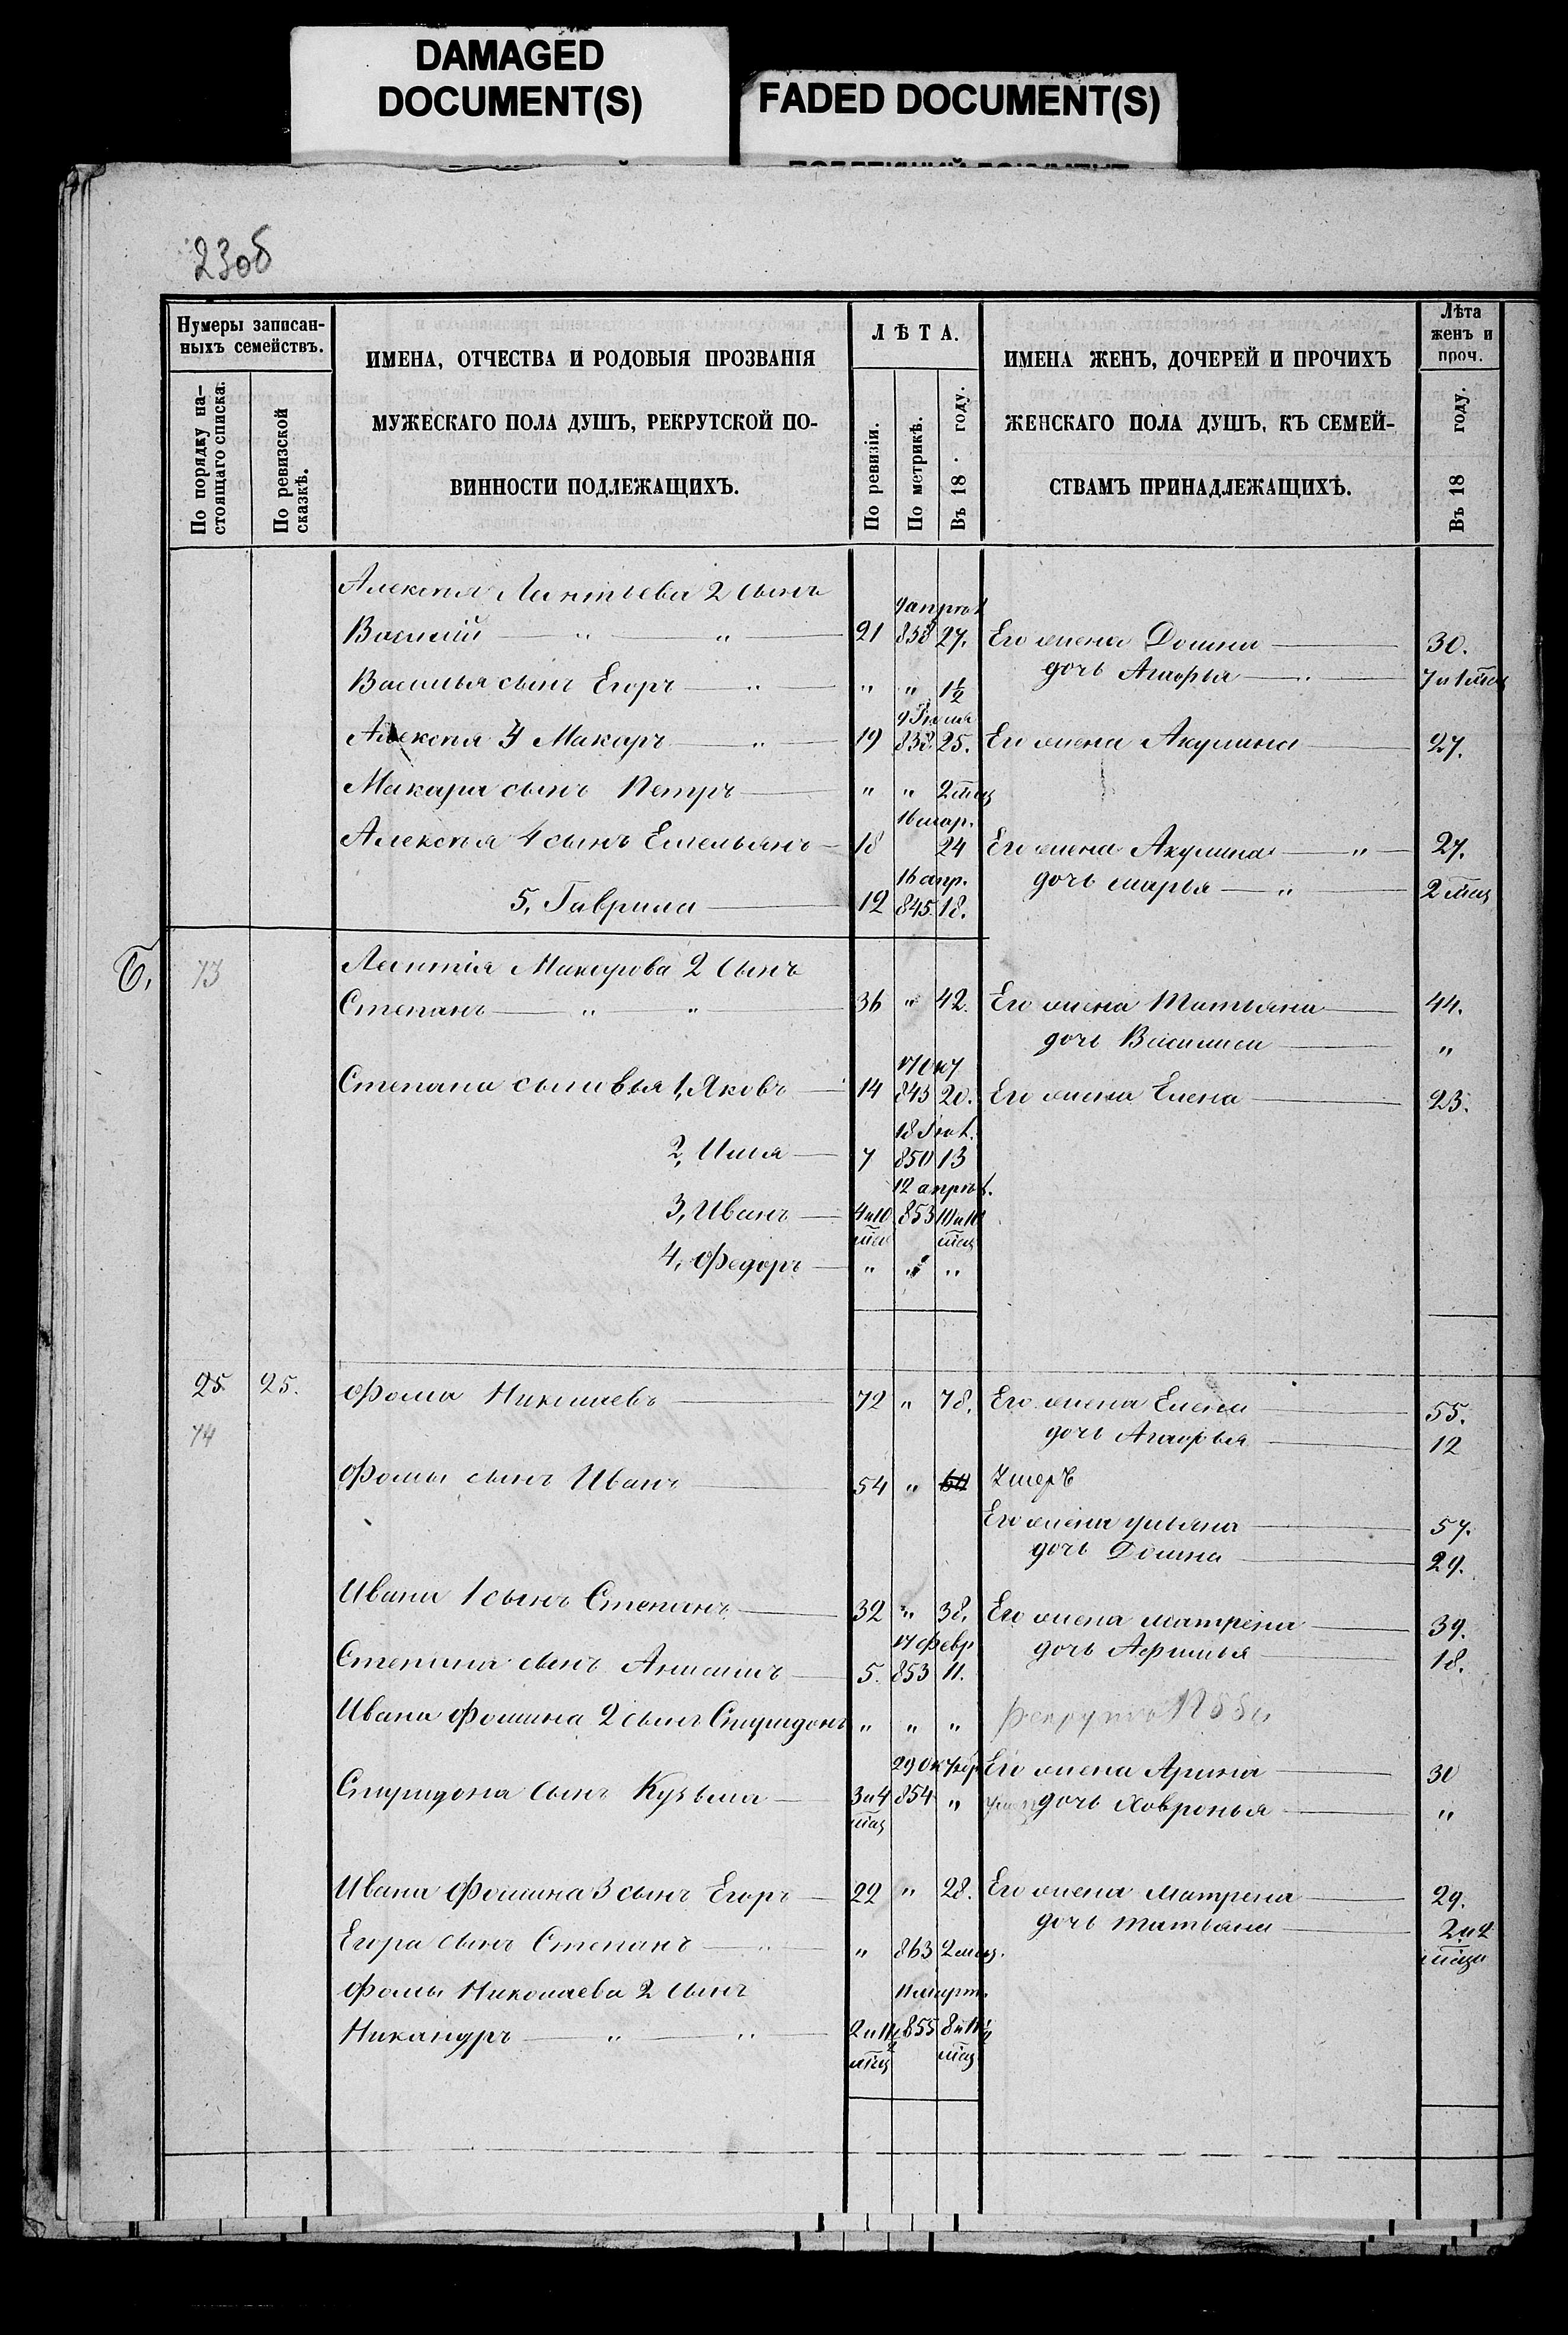 DAMAGED
DOCUMENT(S)
FADED DOCUMENT(S)
230б
Нумеры записан-
ныхъ семействъ.
По порядку на-
стоящаго списка.
По ревизской
сказкѣ.
ИМЕНА, ОТЧЕСТВА И РОДОВЫЯ ПРОЗВАНІЯ
МУЖЕСКАГО ПОЛА ДУШЪ, РЕКРУТСКОЙ ПО-
ВИННОСТИ ПОДЛЕЖАЩИХЪ.
ЛѢТА.
По ревизіи.
По метрикѣ.
Въ 18 . году.
ИМЕНА ЖЕНЪ, ДОЧЕРЕЙ И ПРОЧИХЪ
ЖЕНСКАГО ПОЛА ДУШЪ, КЪ СЕМЕЙ-
СТВАМЪ ПРИНАДЛЕЖАЩИХЪ.
Лѣта
женъ и
проч.
Въ 18 году.
Алексѣя Леонтьева 2 сынъ
9 апрѣл
Василій — " — " — 21 838 27. Его жена Домна — 30.
дочь Агафья — "
Василья сынъ Егоръ — " — " " 1½
9 Іюля
Алексѣя 3 Макаръ — " — 19 838. 25. Его жена Акулина — 27.
Макара сынъ Петръ — " " 2 мѣц
16 мар.
Алексѣя 4 сынъ Емельянъ — 18 24 Его жена Акулина — " — 27.
16 апр. дочь Марья — " — 2 мѣц
5, Гаврила — 12 845. 18.
73 Леонтія Макарова 2 сынъ
Степанъ — " — " — 36 " 42. Его жена Татьяна — 44.
дочь Василиса — "
Степана сыновья 1, Яковъ — 14 843 20. Его жена Елена — 23.
18 Іюл.
2, Илья — 7 850 13
12 апрѣл.
3, Иванъ — 4 и 10 853 10 и 10
мѣс мѣц
4, Федоръ — " " "
25. 25. Фома Николаевъ — 72 " 78. Его жена Елена — 55.
74 дочь Агафья — 12
Фомы сынъ Иванъ — 54 " 60 Умеръ
Его жена Ульяна — 57.
дочь Домна — 29.
Ивана 1 сынъ Степанъ — 32 " 38. Его жена Матрена — 39.
17 февр дочь Афимья — 18.
Степана сынъ Анисимъ — 5. 853 11.
Ивана Фомина 2 сынъ Спиридонъ " " "
29 Октяб Его жена Арина — 30
Спиридона сынъ Кузьма — 3 и 4 854 " дочь Ховронья — "
мѣц
Ивана Фомина 3 сынъ Егоръ — 22 " 28. Его жена Матрена — 29.
дочь Татьяна — 2 и 2
Егора сынъ Степанъ — " — " 863 2 мѣц.
Фомы Николаева 2 сынъ 11 март.
Никандръ — " — " — 2 и 11½ 855 8 и 11½
мѣц мѣц